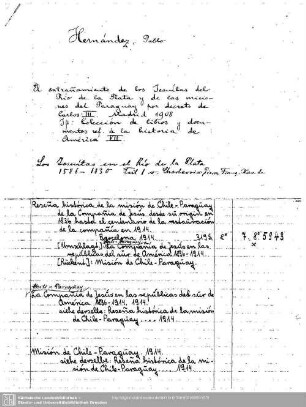 Hernández, Pablo
El extrañamiento de los Jesuitas del
Río de la Plata y de las misio-
nes del Paraguay por decreto de
Carlos III. Madrid 1908
Colección de libros y docu-
mentos ref. a la historia de
América VII
Los Jesuitas en el Río de la Plata
1586-1830
Reseña histórica de la misión de Chile-Paraguay
de la Compañía de Jesús desde su origen en
1836 hasta el centenario de la restauración
de la compañía en 1914.
Barcelona 1914. 319 S. 8° 7. 8° 5943
[Umschlagt.]: La Compañía de Jesús en las
repúblicas del sur de América 1836-1914.
[Rückent.]: Misión de Chile-Paraguay.
La Compañía de Jesús en las repúblicas del sur de
América 1836-1914. 1914.
siehe derselbe: Reseña histórica de la misión
de Chile-Paraguay .... 1914.
Misión de Chile-Paraguay. 1914.
siehe derselbe: Reseña histórica de la mi-
sión de Chile-Paraguay .... 1914.